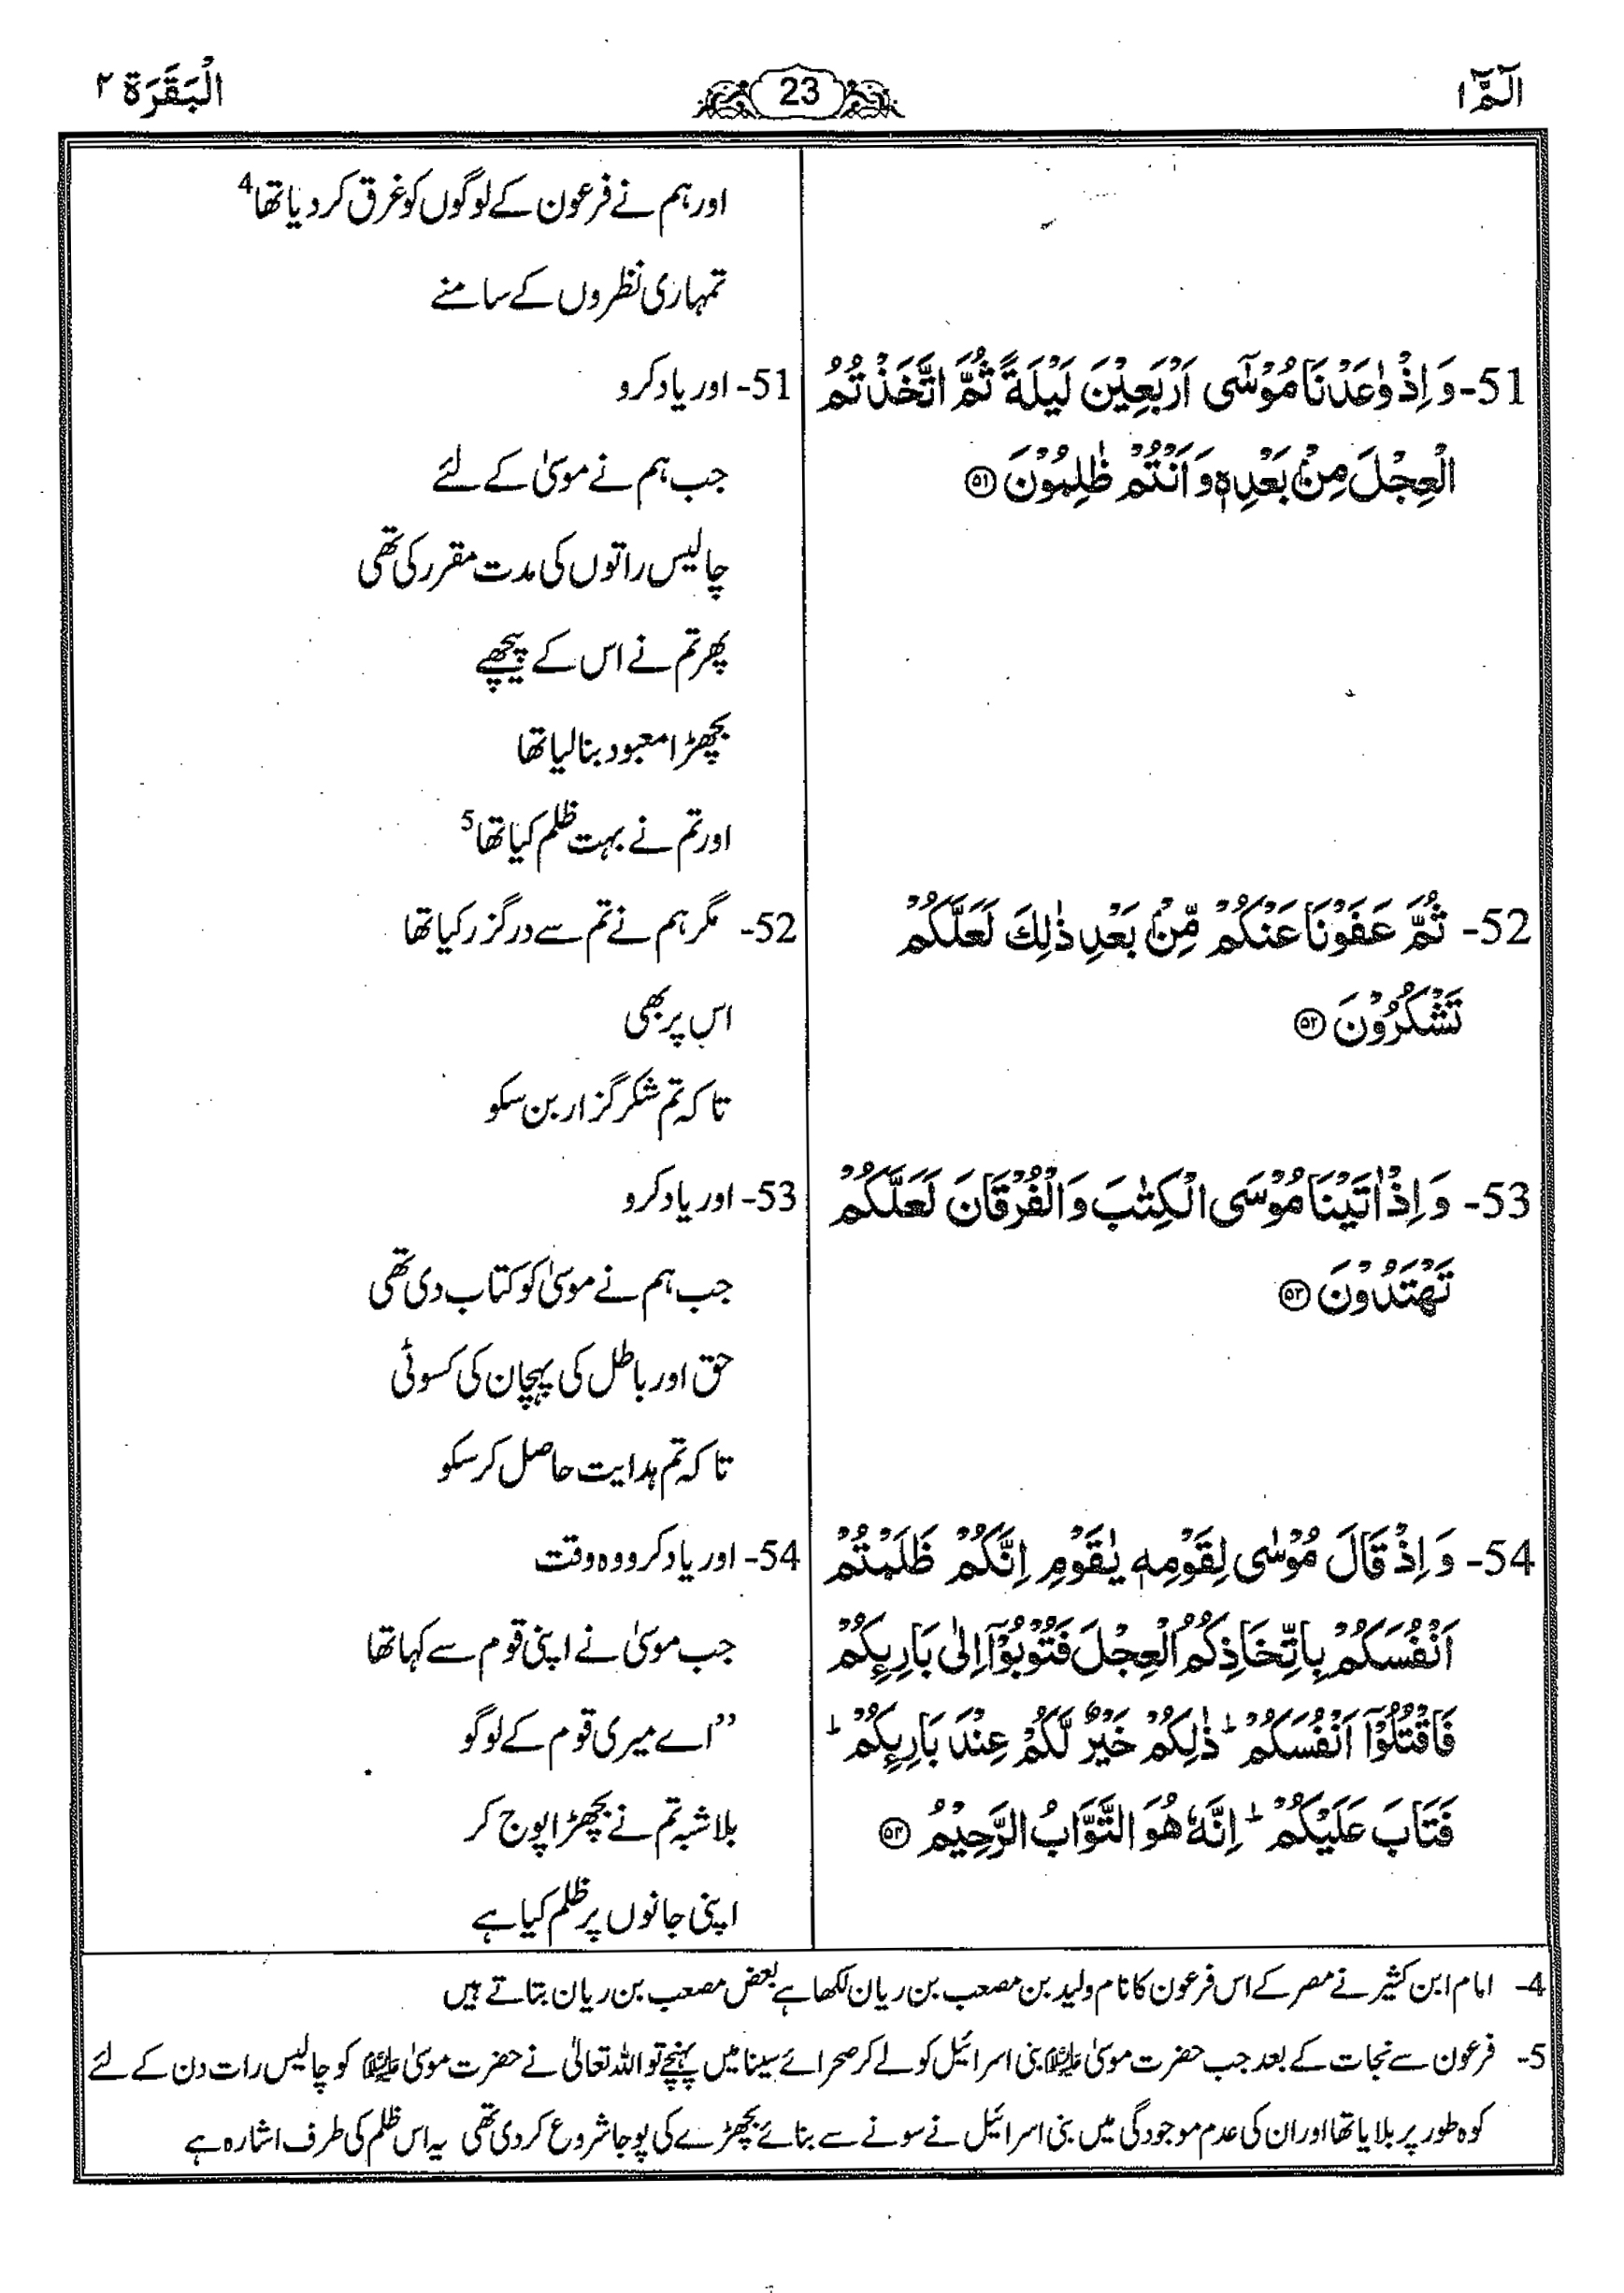 الٓمّٓ ۱
23
الْبَقَرَة ۲
اور ہم نے فرعون کے لوگوں کو غرق کر دیا تھا4
تمہاری نظروں کے سامنے
51- وَ اِذْ وٰعَدْنَا مُوْسٰٓى اَرْبَعِيْنَ لَيْلَةً ثُمَّ اتَّخَذْتُمُ
الْعِجْلَ مِنْۢ بَعْدِهٖ وَ اَنْتُمْ ظٰلِمُوْنَ ۵۱
51- اور یاد کرو
جب ہم نے موسیٰ کے لئے
چالیس راتوں کی مدت مقرر کی تھی
پھر تم نے اس کے پیچھے
بچھڑا معبود بنا لیا تھا
اور تم نے بہت ظلم کیا تھا5
52- ثُمَّ عَفَوْنَا عَنْكُمْ مِّنْۢ بَعْدِ ذٰلِكَ لَعَلَّكُمْ
تَشْكُرُوْنَ ۵۲
52- مگر ہم نے تم سے درگزر کیا تھا
اس پر بھی
تاکہ تم شکر گزار بن سکو
53- وَ اِذْ اٰتَيْنَا مُوْسَى الْكِتٰبَ وَ الْفُرْقَانَ لَعَلَّكُمْ
تَهْتَدُوْنَ ۵۳
53- اور یاد کرو
جب ہم نے موسیٰ کو کتاب دی تھی
حق اور باطل کی پہچان کی کسوٹی
تاکہ تم ہدایت حاصل کر سکو
54- وَ اِذْ قَالَ مُوْسٰى لِقَوْمِهٖ يٰقَوْمِ اِنَّكُمْ ظَلَمْتُمْ
اَنْفُسَكُمْ بِاتِّخَاذِكُمُ الْعِجْلَ فَتُوْبُوْٓا اِلٰى بَارِىِٕكُمْ
فَاقْتُلُوْٓا اَنْفُسَكُمْ ؕ ذٰلِكُمْ خَيْرٌ لَّكُمْ عِنْدَ بَارِىِٕكُمْ ؕ
فَتَابَ عَلَيْكُمْ ؕ اِنَّهٗ هُوَ التَّوَّابُ الرَّحِيْمُ ۵۴
54- اور یاد کرو وہ وقت
جب موسیٰ نے اپنی قوم سے کہا تھا
”اے میری قوم کے لوگو
بلاشبہ تم نے بچھڑا پوج کر
اپنی جانوں پر ظلم کیا ہے
4- امام ابن کثیر نے مصر کے اس فرعون کا نام ولید بن مصعب بن ریان لکھا ہے بعض مصعب بن ریان بتاتے ہیں
5- فرعون سے نجات کے بعد جب حضرت موسیٰ علیہ السلام بنی اسرائیل کو لے کر صحرائے سینا میں پہنچے تو اللہ تعالیٰ نے حضرت موسیٰ علیہ السلام کو چالیس رات دن کے لئے
کوہ طور پر بلایا تھا اور ان کی عدم موجودگی میں بنی اسرائیل نے سونے سے بنائے بچھڑے کی پوجا شروع کر دی تھی یہ اس ظلم کی طرف اشارہ ہے